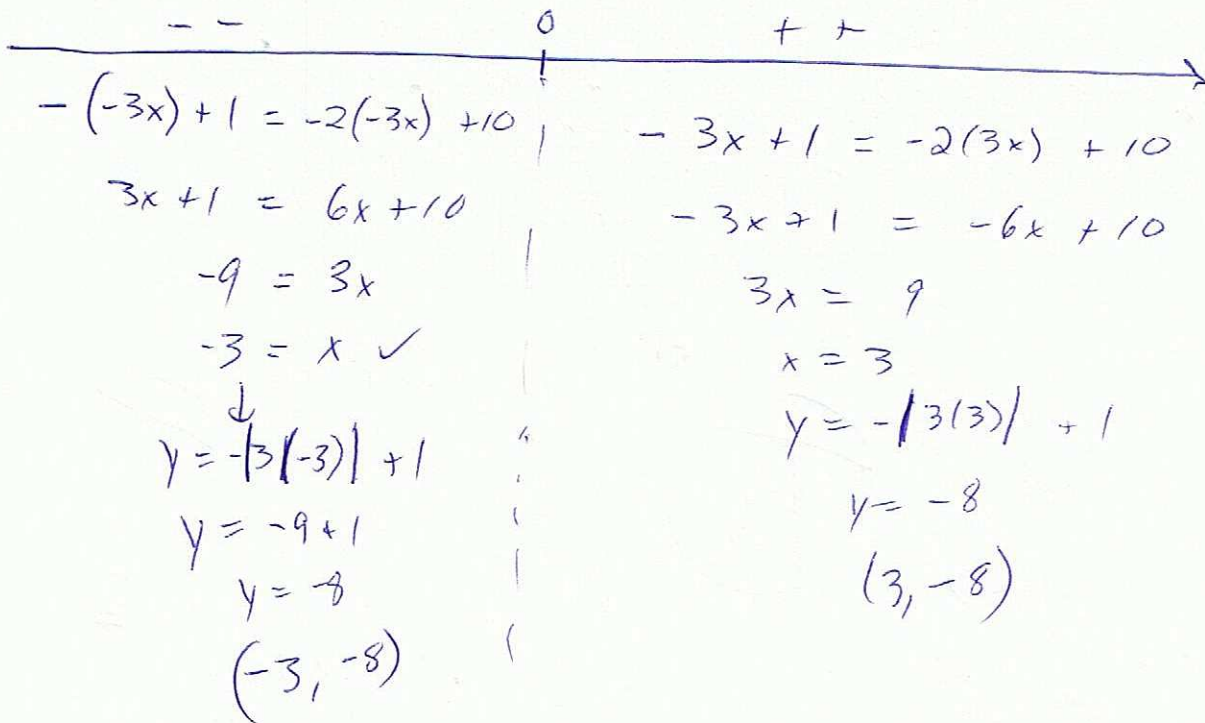 - - 0 + +
-(-3x) + 1 = -2(-3x) + 10
3x + 1 = 6x + 10
-9 = 3x
-3 = x ✓
↓
y = -|3(-3)| + 1
y = -9 + 1
y = -8
(-3, -8)
- 3x + 1 = -2(3x) + 10
- 3x + 1 = -6x + 10
3x = 9
x = 3
y = -|3(3)| + 1
y = -8
(3, -8)